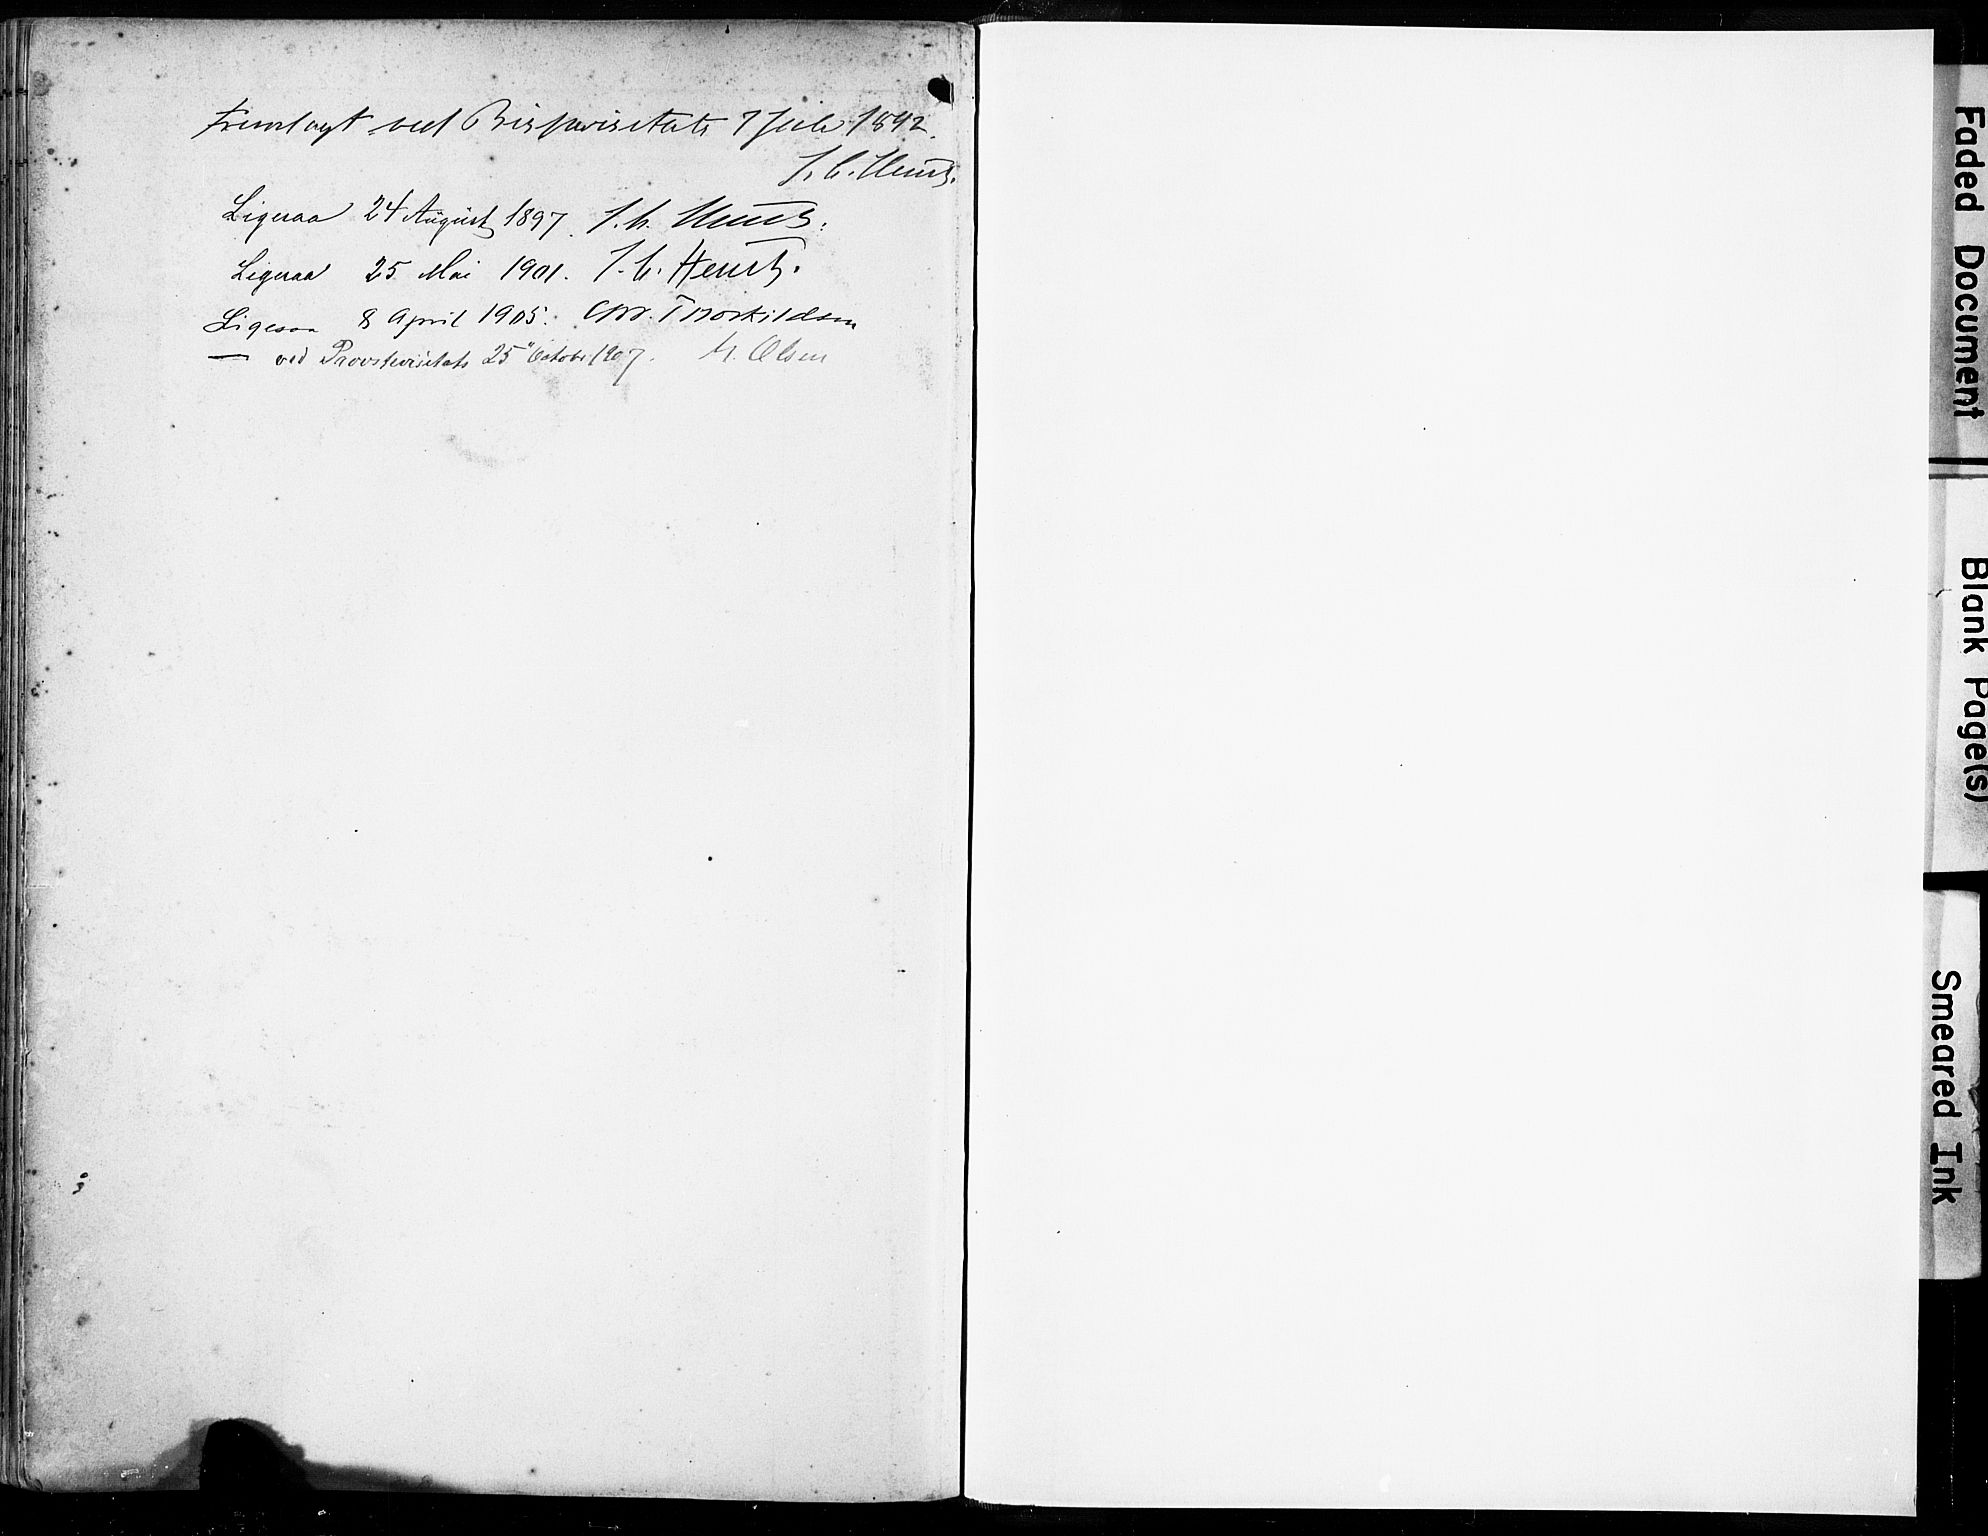 Fremlagt ved Bispevisitats 7 Juli 1892.
J. C. Heuch.
Ligesaa 24 August 1897. J. C. Heuch.
Ligesaa 25 Mai 1901. J. C. Heuch.
Ligesaa 8 April 1905. Chr. Thorkildsen
— ved Provstevisitats 25" Octobr 1907. Olsen
Faded Document
Blank Page(s)
Smeared Ink